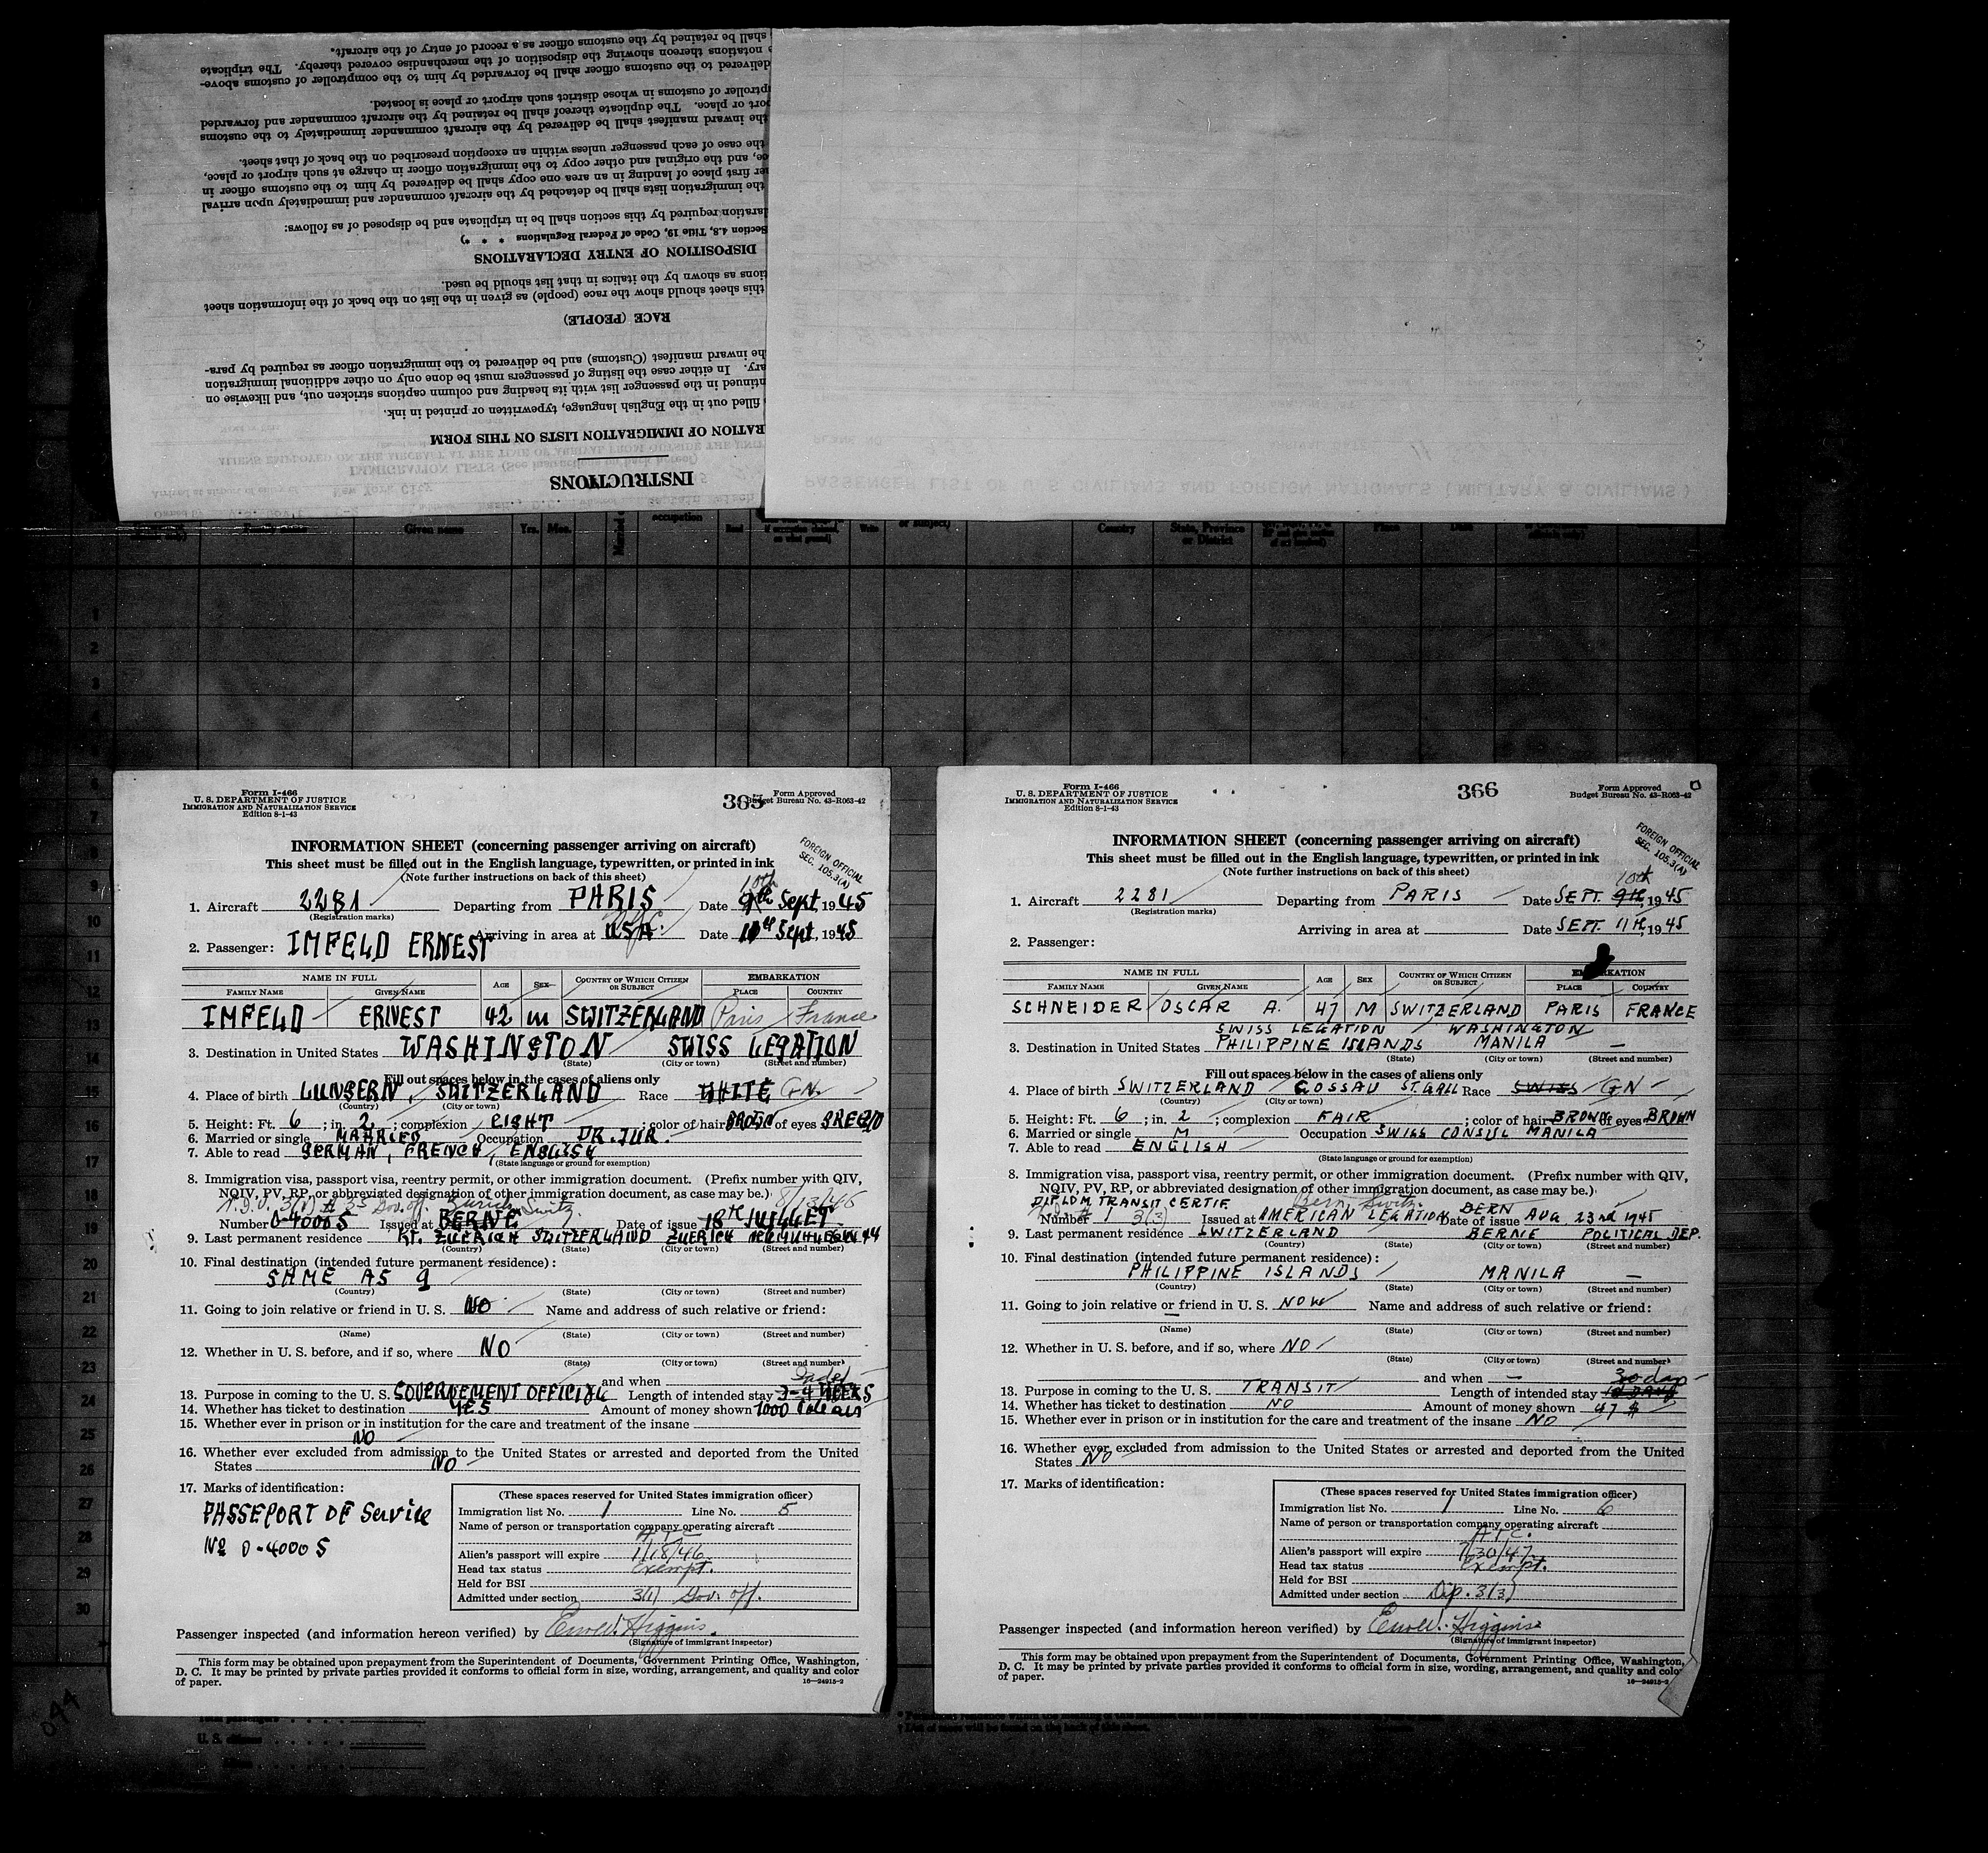 shall be retained by the customs officer as a record of entry of the aircraft.
notations thereon showing the disposition of the merchandise covered thereby. The triplicate
delivered to the customs officer shall be forwarded by him to the comptroller of customs above-
ptroller of customs in whose district such airport or place is located.
port or place. The duplicate thereof shall be retained by the aircraft commander and forwarded
the inward manifest shall be delivered by the aircraft commander immediately to the customs
the case of each passenger unless within an exception prescribed on the back of that sheet.
ce, and the original and other copy to the immigration officer in charge at such airport or place,
er first place of landing in an area one copy shall be delivered by him to the customs officer in
the immigration lists shall be detached by the aircraft commander and immediately upon arrival
laration required by this section shall be in triplicate and be disposed of as follows:
Section 4.8, Title 19, Code of Federal Regulations * * *)
DISPOSITION OF ENTRY DECLARATIONS
tions as shown by the italics in that list should be used.
this sheet should show the race (people) as given in the list on the back of the information sheet
RACE (PEOPLE)
he inward manifest (Customs) and be delivered to the immigration officer as required by para-
ary. In either case the listing of passengers must be done only on other additional immigration
ntinued in the passenger list with its heading and column captions stricken out, and likewise on
filled out in the English language, typewritten or printed in ink.
RATION OF IMMIGRATION LISTS ON THIS FORM
INSTRUCTIONS
PASSENGER LIST OF U.S CIVILIANS AND FOREIGN NATIONALS (MILITARY & CIVILIANS)
Given name Yrs. Mos. occupation Read Write or subject) Country State, Province or District Place Date
Form I-466
U. S. DEPARTMENT OF JUSTICE
IMMIGRATION AND NATURALIZATION SERVICE
Edition 8-1-43
365
Form Approved
Budget Bureau No. 43-R063-42
INFORMATION SHEET (concerning passenger arriving on aircraft)
This sheet must be filled out in the English language, typewritten, or printed in ink
(Note further instructions on back of this sheet)
FOREIGN OFFICIAL
SEC. 105.3(A)
10th
1. Aircraft 2281 Departing from PARIS Date 9th Sept, 1945
(Registration marks)
Arriving in area at USA Date 10th Sept, 1945
2. Passenger: IMFELD ERNEST
NAME IN FULL AGE SEX COUNTRY OF WHICH CITIZEN OR SUBJECT EMBARKATION
FAMILY NAME GIVEN NAME PLACE COUNTRY
IMFELD ERNEST 42 m SWITZERLAND Paris France
3. Destination in United States WASHINGTON SWISS LEGATION
(State) (City or town) (Street and number)
Fill out spaces below in the cases of aliens only
4. Place of birth LUNGERN, SWITZERLAND Race WHITE GN.
(Country) (City or town)
5. Height: Ft. 6; in. 2; complexion LIGHT; color of hair of eyes
6. Married or single MARRIED Occupation DR. JUR.
7. Able to read GERMAN, FRENCH, ENGLISH
(State language or ground for exemption)
8. Immigration visa, passport visa, reentry permit, or other immigration document. (Prefix number with QIV,
NQIV, PV, RP, or abbreviated designation of other immigration document, as case may be.) 8/13/45
3(1) # 35 Gov. off. Zurich Switz.
Number 0-4000 S Issued at BERNE Date of issue 18th JUILLET
9. Last permanent residence KT. ZUERICH SWITZERLAND ZUERICH
(Country) (State) (City or town) (Street and number)
10. Final destination (intended future permanent residence):
SAME AS 9
(Country) (State) (City or town) (Street and number)
11. Going to join relative or friend in U. S. NO Name and address of such relative or friend:
(Name) (State) (City or town) (Street and number)
12. Whether in U. S. before, and if so, where NO
(State) (City or town) (Street and number)
and when
13. Purpose in coming to the U. S. GOUVERNEMENT OFFICIAL Length of intended stay 3-4 WEEKS
14. Whether has ticket to destination YES Amount of money shown 1000
15. Whether ever in prison or in institution for the care and treatment of the insane
NO
16. Whether ever excluded from admission to the United States or arrested and deported from the United
States NO
17. Marks of identification:
PASSEPORT OF Service
No 0-4000 S
(These spaces reserved for United States immigration officer)
Immigration list No. 1 Line No. 5
Name of person or transportation company operating aircraft
A.T.C
Alien's passport will expire 1/18/46
Head tax status Exempt.
Held for BSI
Admitted under section 3(1) Gov. off.
Passenger inspected (and information hereon verified) by Higgins.
(Signature of immigrant inspector)
This form may be obtained upon prepayment from the Superintendent of Documents, Government Printing Office, Washington,
D. C. It may be printed by private parties provided it conforms to official form in size, wording, arrangement, and quality and color
of paper.
16—24915-2
Form I-466
U. S. DEPARTMENT OF JUSTICE
IMMIGRATION AND NATURALIZATION SERVICE
Edition 8-1-43
366
Form Approved
Budget Bureau No. 43-R063-42
INFORMATION SHEET (concerning passenger arriving on aircraft)
This sheet must be filled out in the English language, typewritten, or printed in ink
(Note further instructions on back of this sheet)
FOREIGN OFFICIAL
SEC. 105.3(A)
10th
1. Aircraft 2281 Departing from PARIS Date SEPT. 9th, 1945
(Registration marks)
Arriving in area at Date SEPT. 11th, 1945
2. Passenger:
NAME IN FULL AGE SEX COUNTRY OF WHICH CITIZEN OR SUBJECT EMBARKATION
FAMILY NAME GIVEN NAME PLACE COUNTRY
SCHNEIDER OSCAR A. 47 M SWITZERLAND PARIS FRANCE
SWISS LEGATION WASHINGTON
3. Destination in United States PHILIPPINE ISLANDS MANILA —
(State) (City or town) (Street and number)
Fill out spaces below in the cases of aliens only
4. Place of birth SWITZERLAND GOSSAU ST. GALL Race SWISS GN
(Country) (City or town)
5. Height: Ft. 6; in. 2; complexion FAIR; color of hair BROWN of eyes BROWN
6. Married or single M Occupation SWISS CONSUL MANILA
7. Able to read ENGLISH
(State language or ground for exemption)
8. Immigration visa, passport visa, reentry permit, or other immigration document. (Prefix number with QIV,
NQIV, PV, RP, or abbreviated designation of other immigration document, as case may be.)
DIPLOM TRANSIT CERTIF Bern Switz.
Number 1 3(3) Issued at AMERICAN LEGATION BERN Date of issue AUG 23rd 1945
9. Last permanent residence SWITZERLAND BERNE POLITICAL DEP.
(Country) (State) (City or town) (Street and number)
10. Final destination (intended future permanent residence):
PHILIPPINE ISLANDS MANILA —
(Country) (State) (City or town) (Street and number)
11. Going to join relative or friend in U. S. Name and address of such relative or friend:
—
(Name) (State) (City or town) (Street and number)
12. Whether in U. S. before, and if so, where NO
(State) (City or town) (Street and number)
and when — 30 days
13. Purpose in coming to the U. S. TRANSIT Length of intended stay
14. Whether has ticket to destination NO Amount of money shown 47 $
15. Whether ever in prison or in institution for the care and treatment of the insane NO
16. Whether ever excluded from admission to the United States or arrested and deported from the United
States NO
17. Marks of identification:
(These spaces reserved for United States immigration officer)
Immigration list No. 1 Line No. 6
Name of person or transportation company operating aircraft
A.T.C.
Alien's passport will expire 7/30/47
Head tax status Exempt.
Held for BSI
Admitted under section Dip. 3(3)
Passenger inspected (and information hereon verified) by Higgins
(Signature of immigrant inspector)
This form may be obtained upon prepayment from the Superintendent of Documents, Government Printing Office, Washington,
D. C. It may be printed by private parties provided it conforms to official form in size, wording, arrangement, and quality and color
of paper.
16—24915-2